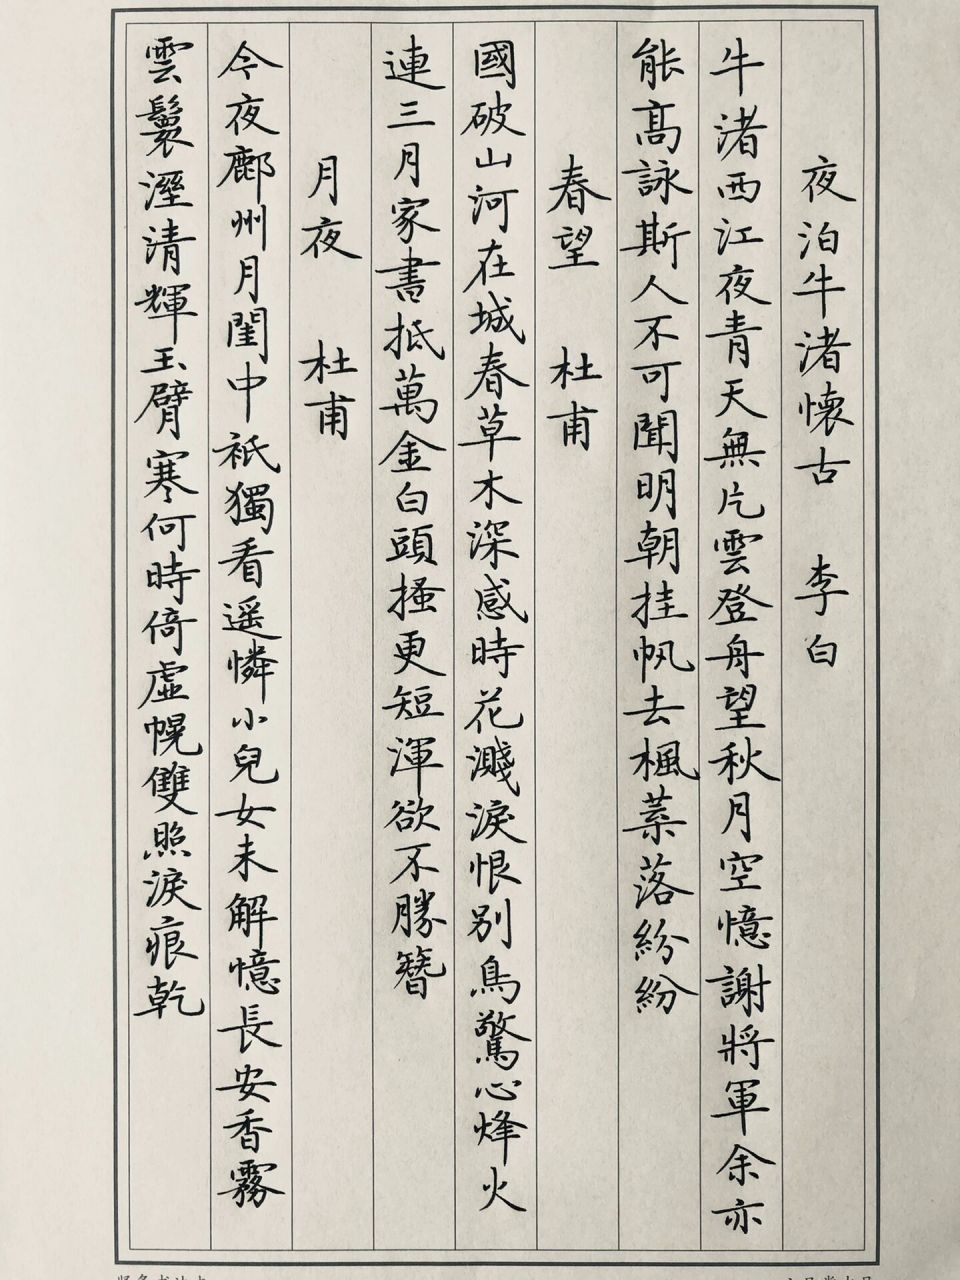 夜泊牛渚懷古 李白
牛渚西江夜青天無片雲登舟望秋月空憶謝將軍余亦
能高詠斯人不可聞明朝挂帆去楓葉落紛紛
春望 杜甫
國破山河在城春草木深感時花濺淚恨別鳥驚心烽火
連三月家書抵萬金白頭搔更短渾欲不勝簪
月夜 杜甫
今夜鄜州月閨中祇獨看遥憐小兒女未解憶長安香霧
雲鬟溼清輝玉臂寒何時倚虛幌雙照淚痕乾